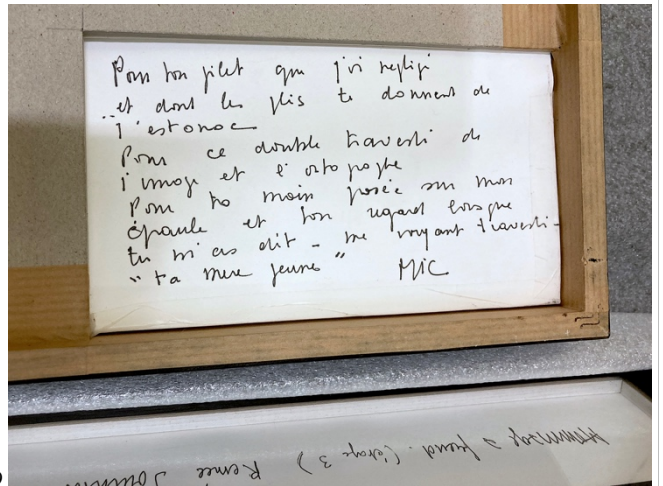 Pour ton gilet que j'ai negligé
et dont les plis te donnent de
l'estomac
Pour ce double travesti de
l'image et l'ortografe
Pour ta main posée sur mon
épaule et ton regard lorsque
tu m'as dit - me voyant travesti -
"ta mere jeune" MIC
Hommage à Freud. (étape 3) Renée